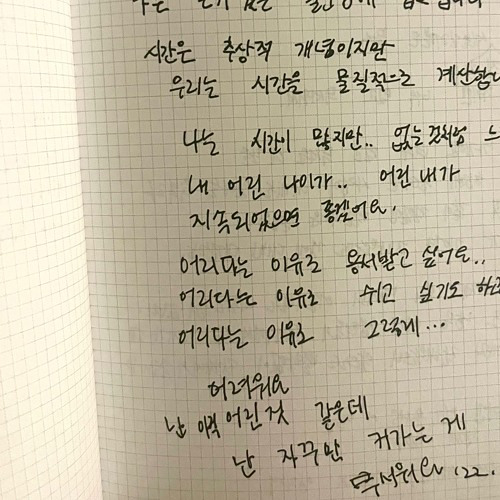 시간은 추상적 개념이지만
우리는 시간을 물질적으로 계산합니
나는 시간이 많지만.. 없는것처럼 느
내 어린 나이가.. 어린 내가
지속되었으면 좋겠어요.
어리다는 이유로 용서받고 싶어요..
어리다는 이유로 쉬고 싶기도 하고
어리다는 이유로 그렇게...
어려워요
난 아직 어린것 같은데
난 자꾸만 커가는 게
무서워요 '22.